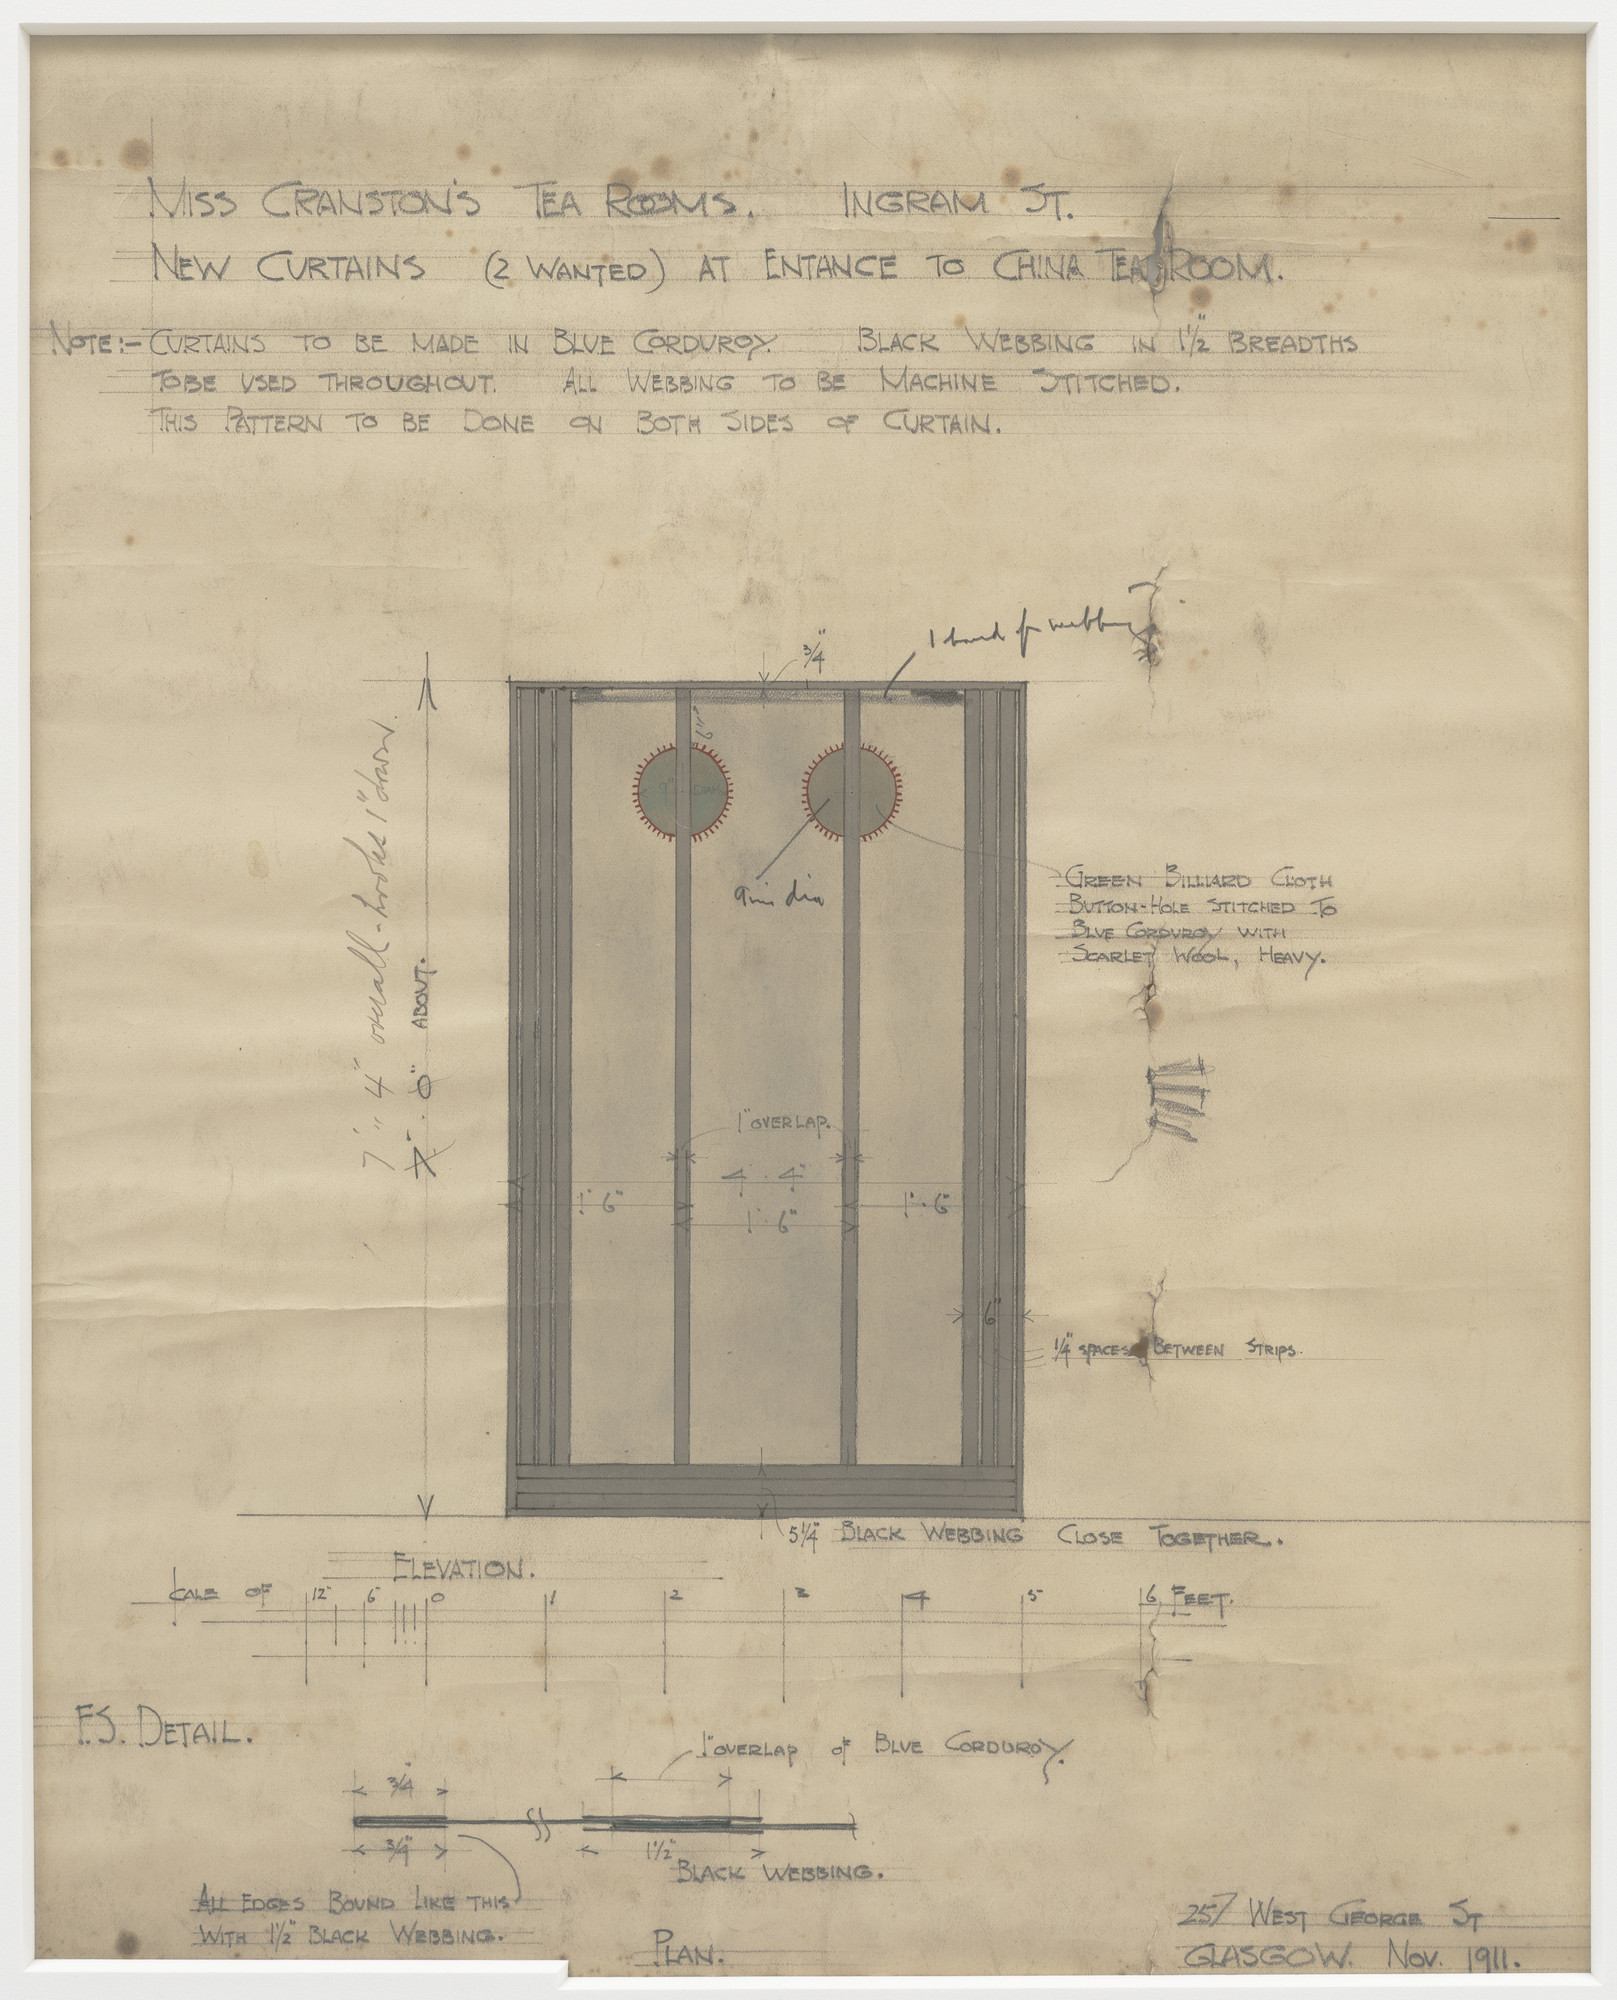 MISS CRANSTON'S TEA ROOMS. INGRAM ST.
NEW CURTAINS (2 WANTED) AT ENTANCE TO CHINA TEA ROOM.
NOTE:- CURTAINS TO BE MADE IN BLUE CORDUROY. BLACK WEBBING IN 1½" BREADTHS
TO BE USED THROUGHOUT. ALL WEBBING TO BE MACHINE STITCHED.
THIS PATTERN TO BE DONE ON BOTH SIDES OF CURTAIN.
3/4"
1 band of webbing
6"
9" DIAM
9in dia
GREEN BILLIARD CLOTH
BUTTON-HOLE STITCHED TO
BLUE CORDUROY WITH
SCARLET WOOL, HEAVY.
7' 4" overall - hooks 1" down.
7'. 0" ABOUT.
1" OVERLAP.
4'. 4"
1'. 6"
1'. 6"
1'. 6"
6"
1/4" SPACES BETWEEN STRIPS.
5 1/4" BLACK WEBBING CLOSE TOGETHER.
ELEVATION.
SCALE OF 12 6 0 1 2 3 4 5 6 FEET.
F.S. DETAIL.
1" OVERLAP OF BLUE CORDUROY.
3/4"
3/4"
1½"
BLACK WEBBING.
ALL EDGES BOUND LIKE THIS
WITH 1½" BLACK WEBBING.
PLAN.
257 WEST GEORGE ST
GLASGOW. NOV. 1911.